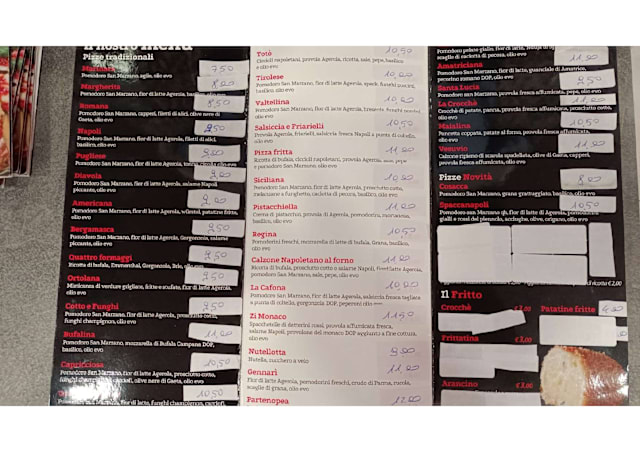 il nostro menu
Pizze tradizionali
Marinara
7,50
Pomodoro San Marzano, aglio, olio evo
Margherita
8,00
Pomodoro San Marzano, fior di latte Agerola, basilico, olio evo
Romana
8,50
Pomodoro San Marzano, capperi, filetti di alici, olive nere di
Gaeta, olio evo
Napoli
9,50
Pomodoro San Marzano, fior di latte Agerola, filetti di alici,
basilico, olio evo
Pugliese
9,50
Diavola
9,00
Pomodoro San Marzano, fior di latte Agerola, salame Napoli
piccante, olio evo
Americana
9,00
Pomodoro San Marzano, fior di latte Agerola, würstel, patatine fritte,
olio evo
Bergamasca
9,50
Pomodoro San Marzano, fior di latte Agerola, Gorgonzola, salame
piccante, olio evo
Quattro formaggi
9,50
Ricotta di bufala, Emmenthal, Gorgonzola, Brie, olio evo
Ortolana
9,50
Misticanza di verdure grigliate, fritte e stufate, fior di latte Agerola,
olio evo
Cotto e Funghi
9,50
Pomodoro San Marzano, fior di latte Agerola, prosciutto cotto,
funghi champignon, olio evo
Bufalina
11,00
Pomodoro San Marzano, mozzarella di Bufala Campana DOP,
basilico, olio evo
Capricciosa
10,50
Pomodoro San Marzano, fior di latte Agerola, prosciutto cotto,
funghi champignon, carciofi, olive nere di Gaeta, olio evo
10,50
Totò
10,50
Ciccioli napoletani, provola Agerola, ricotta, sale, pepe, basilico
e olio evo
Tirolese
10,00
Pomodoro San Marzano, fior di latte Agerola, speck, funghi porcini,
basilico, olio evo
Valtellina
10,00
Pomodoro San Marzano, fior di latte Agerola, bresaola, funghi porcini
basilico, olio evo
Salsiccia e Friarielli
10,50
Provola Agerola, friarielli, salsiccia fresca Napoli a punta di coltello,
olio evo
Pizza fritta
11,00
Ricotta di bufala, ciccioli napoletani, provola Agerola, sale, pepe
e basilico
Siciliana
10,50
Pomodoro San Marzano, fior di latte Agerola, prosciutto cotto,
melanzane a funghetto, caciotta di pecora, basilico, olio evo
Pistacchiella
11,00
Crema di pistacchio, provola di Agerola, pomodorini, mortadella,
basilico, olio evo
Regina
10,50
Pomodorini freschi, mozzarella di latte di bufala, Grana, basilico,
olio evo
Calzone Napoletano al forno
11,00
Ricotta di bufala, prosciutto cotto e salame Napoli, fior di latte Agerola,
pomodoro San Marzano, sale, pepe, olio evo
La Cafona
10,00
Pomodoro San Marzano, fior di latte Agerola, salsiccia fresca tagliata
a punta di coltello, gorgonzola DOP, peperoni olio evo
Zi Monaco
11,50
Spacchetelle di datterini rossi, provola affumicata fresca,
salame Napoli, provolone del monaco DOP aggiunto a fine cottura,
olio evo
Nutellotta
9,00
Nutella, zucchero a velo
Gennari
11,00
Fior di latte Agerola, pomodorini freschi, crudo di Parma, rucola,
scaglie di grana, olio evo
Partenopea
12,00
scaglie di caciotta di pecora, olio evo
Amatriciana
11,00
Pomodoro San Marzano, fior di latte, guanciale di Amatrice,
pecorino romano DOP, olio evo
Santa Lucia
9,50
Pomodoro San Marzano, provola fresca affumicata, pepe, olio evo
La Crocchè
11,00
Crocchè di patate, panna, provola fresca affumicata, prosciutto cotto,
olio evo
Maialina
10,00
Porchetta coppata, patate al forno, provola fresca affumicata,
olio evo
Vesuvio
11,00
Calzone ripieno di scarola spadellata, olive di Gaeta, capperi,
provola fresca affumicata, olio evo
Pizze Novità
Cosacca
8,00
Pomodoro San Marzano, grana grattuggiato, basilico, olio evo
Spaccanapoli
10,50
Pomodoro san Marzano dp, fior di latte di Agerola, pomodorini
gialli e rossi del piennolo, acciughe, olive, origano, olio evo
ricotta €2,00
Il Fritto
Crocchè
Patatine fritte
4,00
Frittatina
€ 3,00
Arancino
€ 3,00